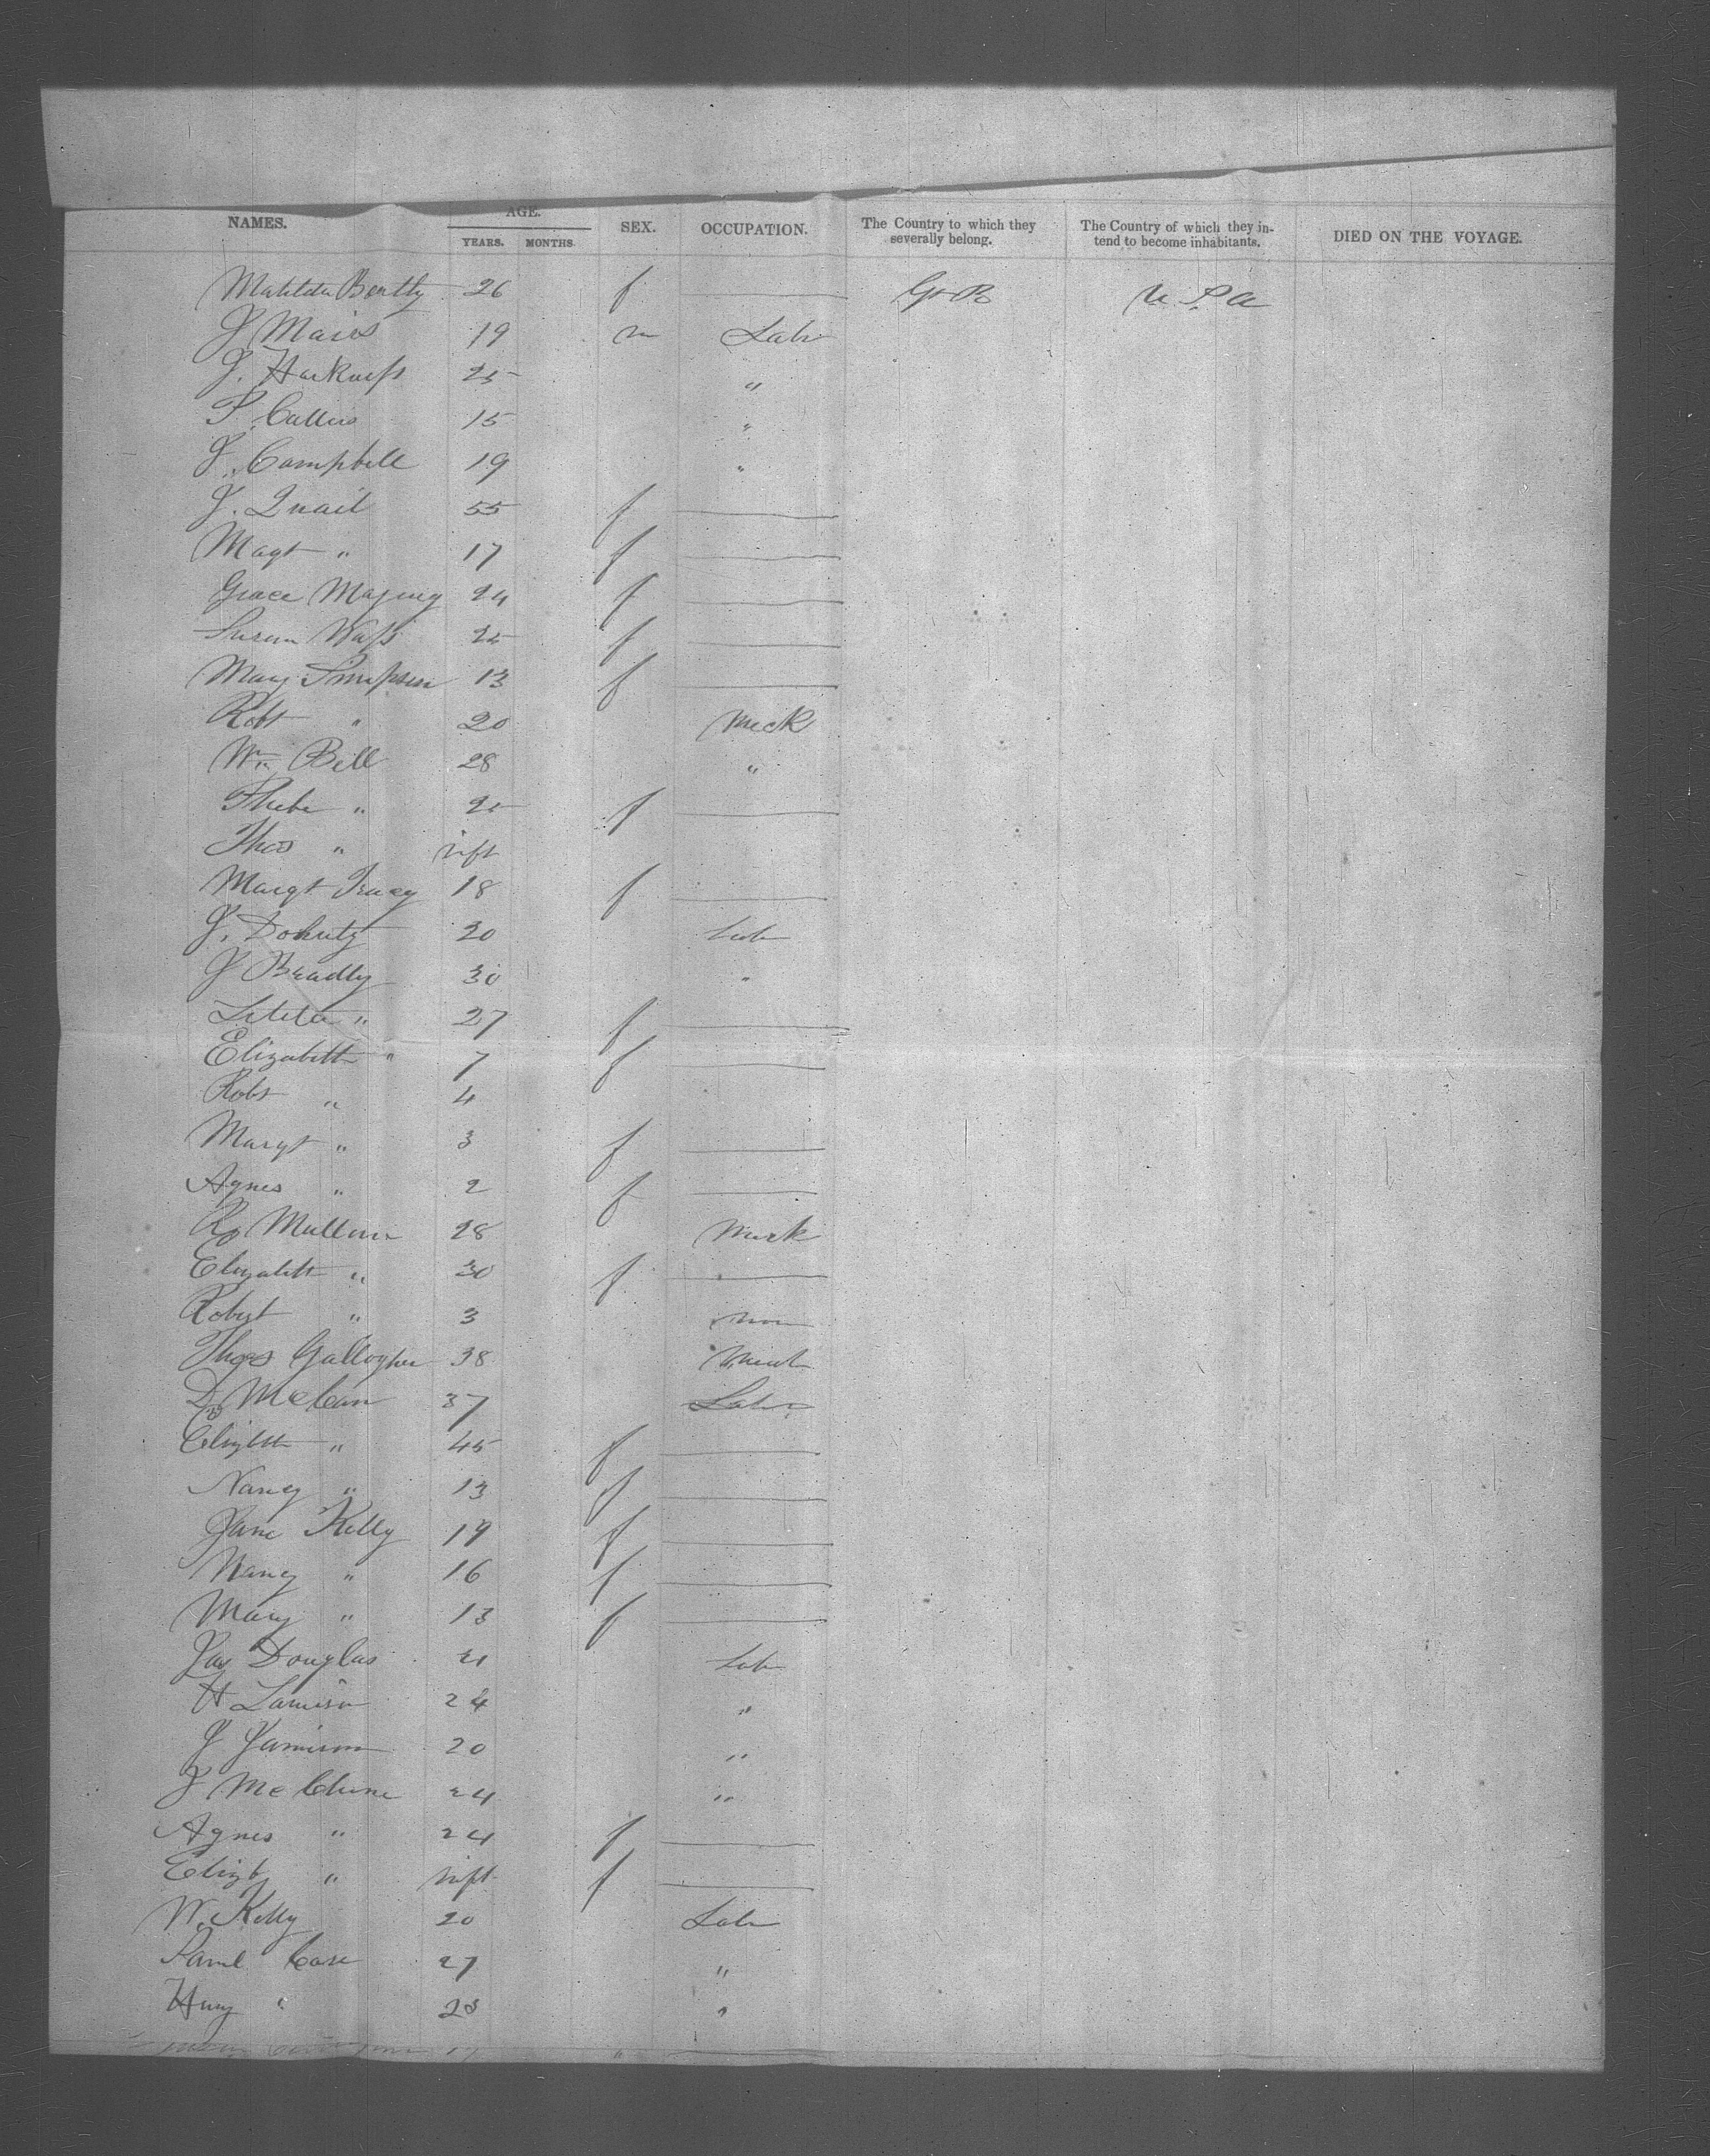 NAMES. AGE. YEARS. MONTHS. SEX. OCCUPATION. The Country to which they severally belong. The Country of which they intend to become inhabitants. DIED ON THE VOYAGE.
Matilda Beatty 26 f G B U S A
J Mairs 19 m Labr
J. Harkness 25 "
P. Cullins 15 "
J. Campbell 19 "
J. Quail 55 f
Magt " 17 f
Grace 24 f
Susan Wass 25 f
Mary Simpson 13 f
Robt " 20 Meck
Wm Bell 28 "
Phebe " 25 f
Thos " inft
Margt Tracy 18 f
J. Doherty 20 Lab
J Bradly 30 "
Letitia " 27 f
Elizabeth " 7 f
Robt " 4
Margt " 3 f
Agnes " 2 f
Mullen 28 Meck
Elizabeth " 30 f
Robert " 3
Thos Gallogher 38
D McCan 37 Labr
Elizbth " 45 f
Nancy " 13 f
Jane Kelly 19 f
Nancy " 16 f
Mary " 13 f
Jas Douglas 21 Lab
H Lamison 24 "
J Jamison 20 "
J McClune 24 "
Agnes " 24 f
Elizb " inft f
W. Kelly 20 Lab
Saml Case 27 "
Huny " 23 "